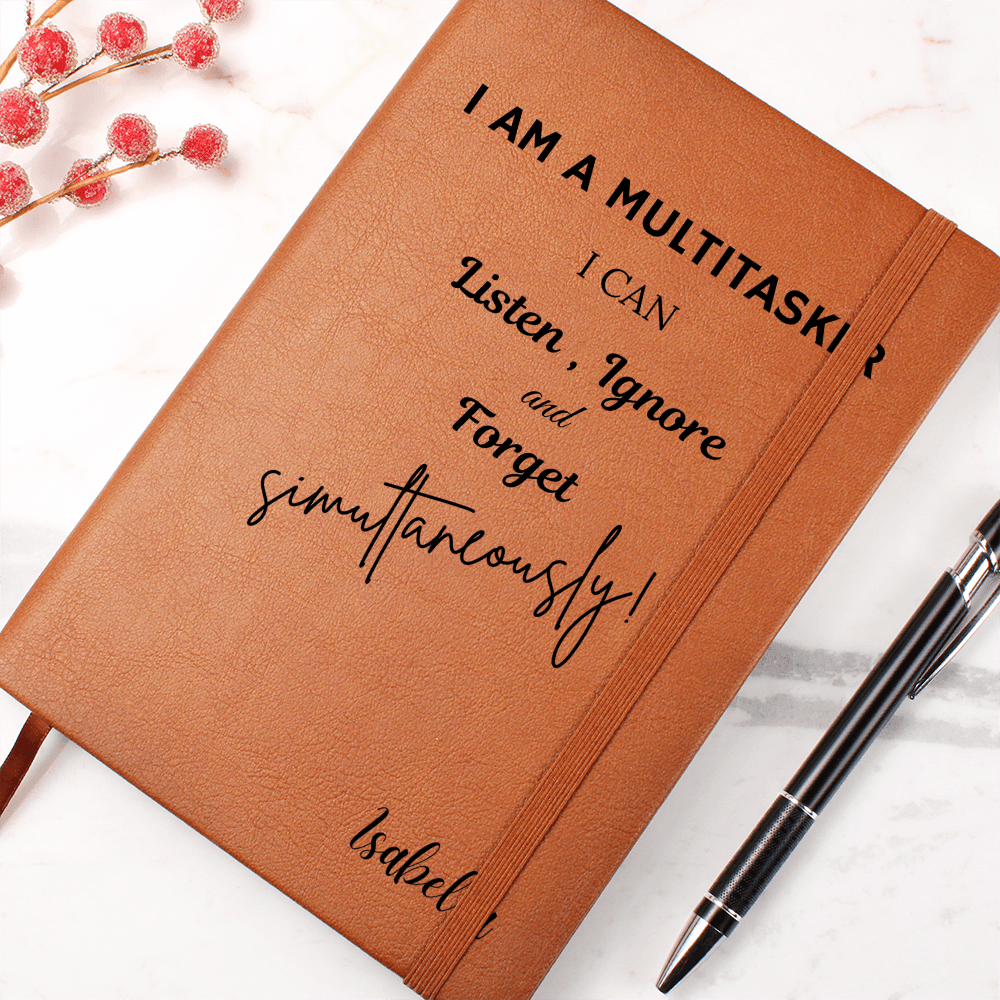 I AM A MULTITASKER
I CAN
Listen , Ignore
and
Forget
simultaneously!
Isabella